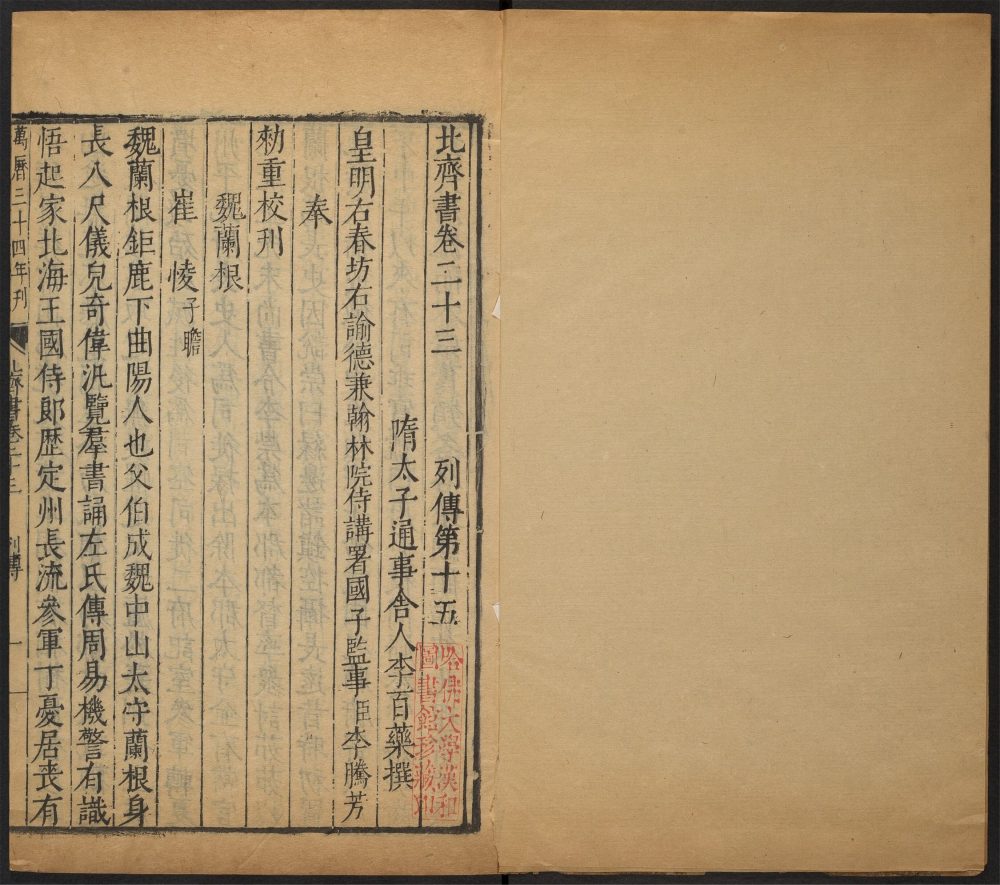 北齊書卷二十三 列傳第十五
隋太子通事舍人李百藥撰
皇明右春坊右諭德兼翰林院侍講署國子監事臣李騰芳
奉
勑重校刋
魏蘭根
崔㥄子瞻
魏蘭根鉅鹿下曲陽人也父伯成魏中山太守蘭根身
長八尺儀皃奇偉汎覽羣書誦左氏傳周易機警有識
悟起家北海王國侍郎歷定州長流參軍丁憂居喪有
萬曆三十四年刋
北齊書卷二十三 列傳 一
哈佛大學漢和
圖書館珍藏印